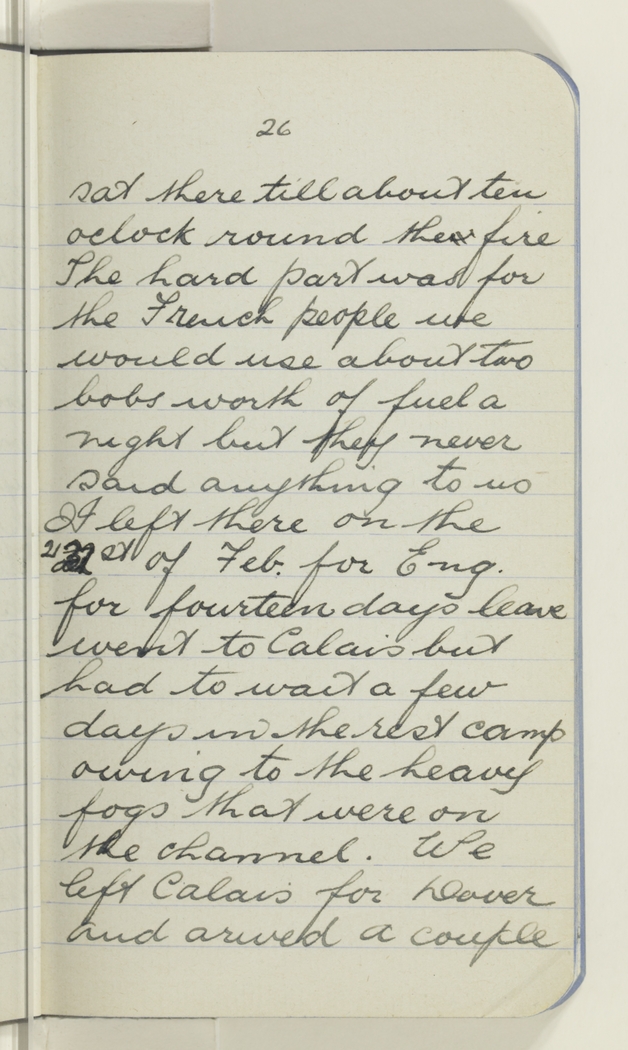 26
sat there till about ten
oclock round the fire
The hard part was for
the French people we
would use about two
bobs worth of fuel a
night but they never
said anything to us
I left there on the
21st of Feb. for Eng.
for fourteen days leave
went to Calais but
had to wait a few
days in the rest camp
owing to the heavy
fogs that were on
the channel. We
left Calais for Dover
and arived a couple